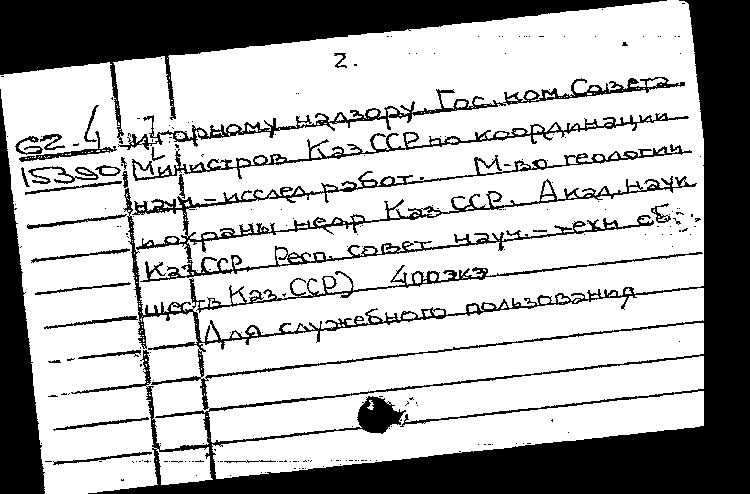 2.
62-4 и горному надзору. Гос. ком. Совета
15390 Министров Каз.ССР по координации
науч.-исслед. работ. М-во геологии
и охраны недр Каз.ССР. Акад. наук
Каз.ССР. Респ. совет науч.-техн об-
ществ Каз.ССР) 400экз
Для служебного пользования